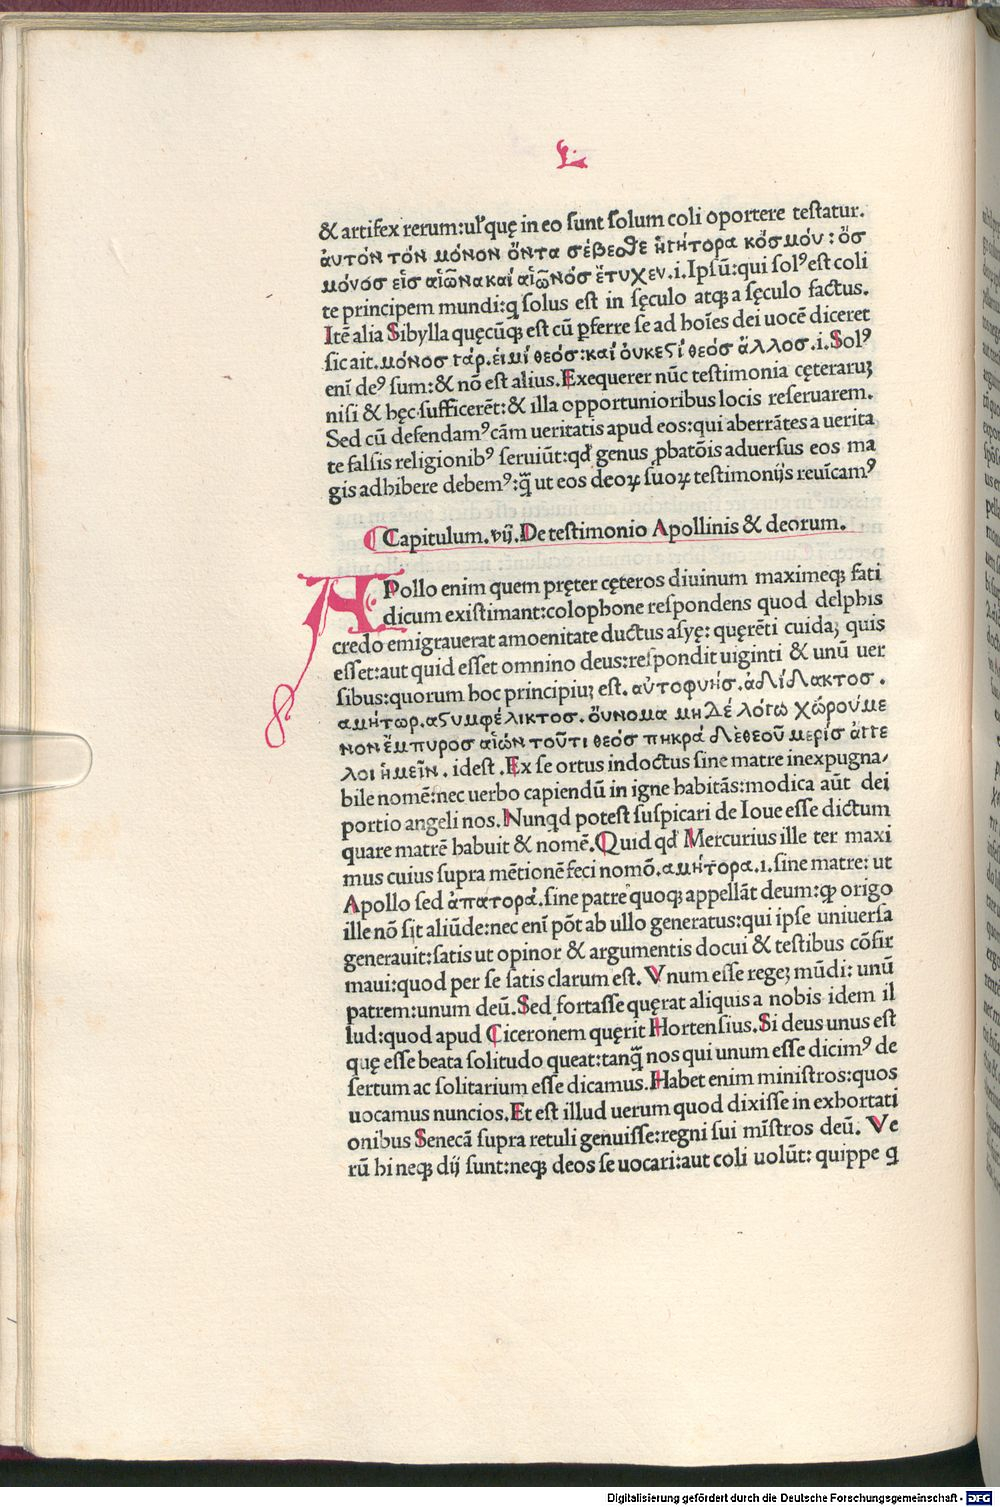 L
& artifex rerum:ul'quę in eo sunt solum coli oportere testatur.
ἀυτόν τόν μόνον ὄντα σέβεσθε ἡγήτορα κόσμόν: ὅσ
μόνόσ εἰσ αἰῶνα καί αἰῶνόσ ἔτυχεν.i.Ipsū:qui solꝰ est coli
te principem mundi:q solus est in sęculo atqꝫ a sęculo factus.
Itē alia Sibylla quęcūqꝫ est cū ꝑferre se ad hoīes dei uocē diceret
sic ait. μόνοσ γάρ. ἐιμί θεόσ: καί ὀυκεϛί θεόσ ἄλλοσ.i.Solꝰ
enī deꝰ sum:& nō est alius.Exequerer nūc testimonia cęteraruꝫ
nisi & hęc sufficerēt:& illa opportunioribus locis reseruarem.
Sed cū defendamꝰ cām ueritatis apud eos:qui aberrātes a uerita
te falsis religionibꝰ seruiūt:qd' genus ꝓbatōis aduersus eos ma
gis adhibere debemꝰ:q̄ ut eos deoꝝ suoꝝ testimonijs reuīcamꝰ
Capitulum.vij.De testimonio Apollinis & deorum.
APollo enim quem pręter cęteros diuinum maximeqꝫ fati
dicum existimant:colophone respondens quod delphis
credo emigrauerat amoenitate ductus asyę: quęrēti cuidaꝫ quis
esset:aut quid esset omnino deus:respondit uiginti & unū uer
sibus:quorum hoc principiuꝫ est. αὐτοφυήσ. ἀδίδακτοσ.
αμήτωρ. αϛυμφέλικτοσ. ὄυνομα μηδέ λόγω χῶρούμε
νον ἔμπυροσ αἰών τοῦτι θεόσ πηκρα δεθεοῦ μερίσ ἀγγε
λοι ἡμεῖν. idest.Ex se ortus indoctus sine matre inexpugna/
bile nomē:nec uerbo capiendū in igne habitās:modica aūt dei
portio angeli nos.Nunqd potest suspicari de Ioue esse dictum
quare matrē habuit & nomē.Quid qd' Mercurius ille ter maxi
mus cuius supra mētionē feci nomō.αμήτορα.i.sine matre: ut
Apollo sed ἀπατορά.sine patre quoqꝫ appellāt deum:qꝫ origo
ille nō sit aliūde:nec enī pōt ab ullo generatus:qui ipse uniuersa
generauit:satis ut opinor & argumentis docui & testibus cōfir
maui:quod per se satis clarum est.Vnum esse regeꝫ mūdi: unū
patrem:unum deū.Sed fortasse quęrat aliquis a nobis idem il
lud:quod apud Ciceronem quęrit Hortensius.Si deus unus est
quę esse beata solitudo queat:tanq̄ nos qui unum esse dicimꝰ de
sertum ac solitarium esse dicamus.Habet enim ministros:quos
uocamus nuncios.Et est illud uerum quod dixisse in exhortati
onibus Senecā supra retuli genuisse:regni sui mīstros deū. Ve
rū hi neqꝫ dij sunt:neqꝫ deos se uocari:aut coli uolūt: quippe q
Digitalisierung gefördert durch die Deutsche Forschungsgemeinschaft - DFG